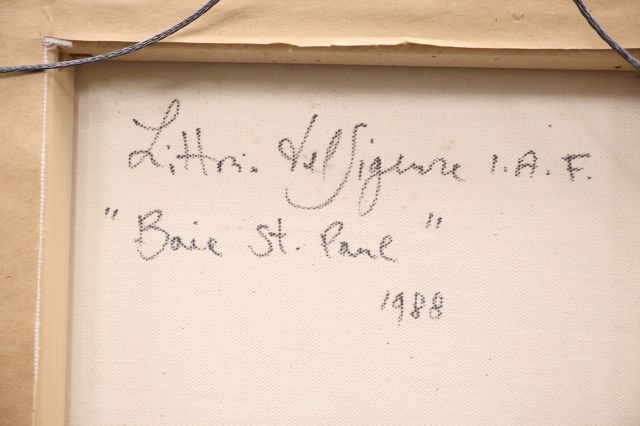 Littorio del Signore I.A.F.
"Baie St. Paul"
1988